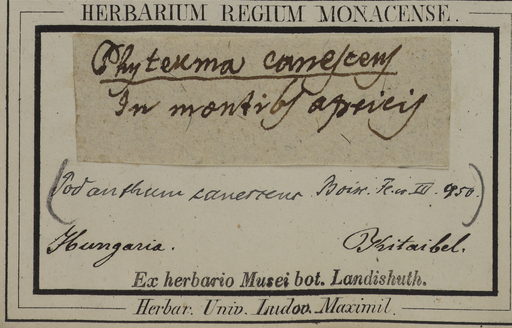 HERBARIUM REGIUM MONACENSE.
Phyteuma canescens
In montibs apricis
(Podanthum canescens Boiss. Fl. or. III. 950.)
Hungaria. Kitaibel.
Ex herbario Musei bot. Landishuth.
Herbar. Univ. Ludov. Maximil.